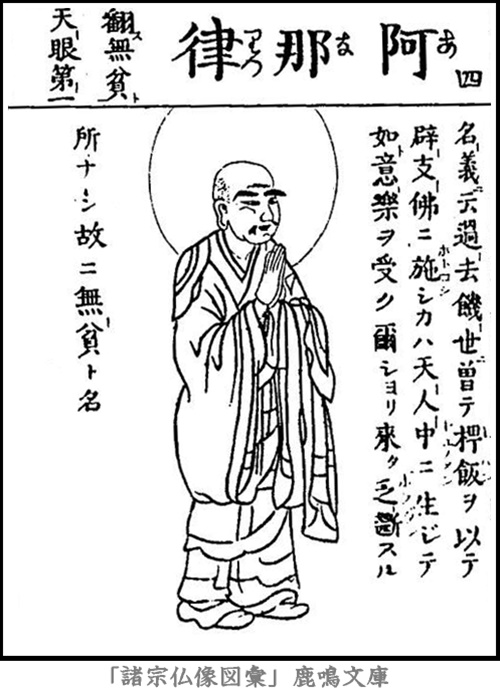 四
阿那律
あなりつ
翻無貧ト
天眼第一
名義云過去饑世曽テ稗飯ヲ以テ
辟支佛ニ施シカハ天人中ニ生ジテ
如意樂ヲ受ク爾シヨリ來タ乏断スル
所ナシ故ニ無貧ト名
「諸宗仏像図彙」鹿鳴文庫